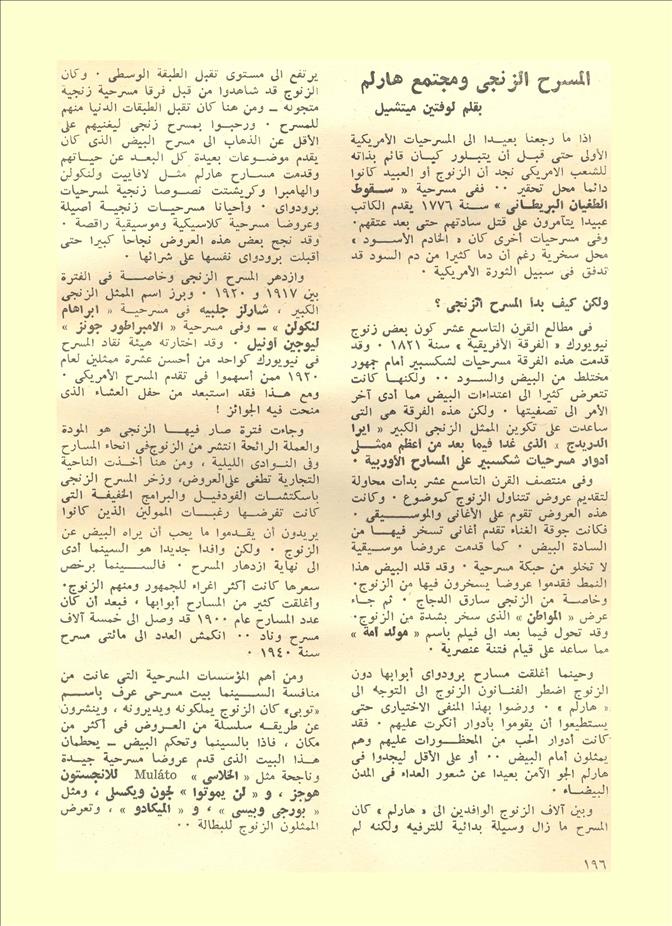 المسرح الزنجى ومجتمع هارلم
بقلم لوفتين ميتشيل
اذا ما رجعنا بعيدا الى المسرحيات الأمريكية
الأولى حتى قبل أن يتبلور كيان قائم بذاته
للشعب الامريكى نجد أن الزنوج أو العبيد كانوا
دائما محل تحقير ٠٠ ففى مسرحية « سقوط
الطغيان البريطانى » سنة ١٧٧٦ يقدم الكاتب
عبيدا يتآمرون على قتل سادتهم حتى بعد عتقهم٠
وفى مسرحيات أخرى كان « الخادم الأسود »
محل سخرية رغم أن دما كثيرا من دم السود قد
تدفق فى سبيل الثورة الأمريكية ٠
ولكن كيف بدأ المسرح الزنجى ؟
فى مطالع القرن التاسع عشر كون بعض زنوج
نيويورك « الفرقة الأفريقية » سنة ١٨٢١ ٠ وقد
قدمت هذه الفرقة مسرحيات لشكسبير أمام جمهور
مختلط من البيض والسود ٠٠ ولكنها كانت
تتعرض كثيرا الى اعتداءات البيض مما أدى آخر
الأمر الى تصفيتها ٠ ولكن هذه الفرقة هى التى
ساعدت على تكوين الممثل الزنجى الكبير « ايرا
الدريدج » الذى غدا فيما بعد من أعظم ممثلى
أدوار مسرحيات شكسبير على المسارح الأوربية ٠
وفى منتصف القرن التاسع عشر بدأت محاولة
لتقديم عروض تتناول الزنوج كموضوع ٠ وكانت
هذه العروض تقوم على الأغانى والموسيقى ٠
فكانت جوقة الغناء تقدم أغانى تسخر فيها من
السادة البيض ٠ كما قدمت عروضا موسيقية
لا تخلو من حبكة مسرحية ٠ وقد قلد البيض هذا
النمط فقدموا عروضا يسخرون فيها من الزنوج٠
وخاصة من الزنجى سارق الدجاج ٠ ثم جاء
عرض « المواطن » الذى سخر بشدة من الزنوج٠
وقد تحول فيما بعد الى فيلم باسم « مولد أمة »
مما ساعد على قيام فتنة عنصرية ٠
وحينما أغلقت مسارح برودواى أبوابها دون
الزنوج اضطر الفنانون الزنوج الى التوجه الى
« هارلم » ٠ ورضوا بهذا المنفى الاختيارى حتى
يستطيعوا أن يقوموا بأدوار أنكرت عليهم ٠ فقد
كانت أدوار الحب من المحظورات عليهم وهم
يمثلون أمام البيض ٠٠ أو على الأقل ليجدوا فى
هارلم الجو الآمن بعيدا عن شعور العداء فى المدن
البيضاء ٠
وبين آلاف الزنوج الوافدين الى « هارلم » كان
المسرح ما زال وسيلة بدائية للترفيه ولكنه لم
يرتفع الى مستوى تقبل الطبقة الوسطى ٠ وكان
الزنوج قد شاهدوا من قبل فرقا مسرحية زنجية
متجولة ــ ومن هنا كان تقبل الطبقات الدنيا منهم
للمسرح ٠ ورحبوا بمسرح زنجى ليغنيهم على
الأقل عن الذهاب الى مسرح البيض الذى كان
يقدم موضوعات بعيدة كل البعد عن حياتهم
وقدمت مسارح هارلم مثل لافاييت ولنكولن
والهامبرا وكريشتت نصوصا زنجية لمسرحيات
برودواى ٠ وأحيانا مسرحيات زنجية أصيلة
وعروضا مسرحية كلاسيكية وموسيقية راقصة ٠
وقد نجح بعض هذه العروض نجاحا كبيرا حتى
أقبلت برودواى نفسها على شرائها ٠
وازدهر المسرح الزنجى وخاصة فى الفترة
بين ١٩١٧ و ١٩٢٠ ٠ وبرز اسم الممثل الزنجى
الكبير ، شارلز جلبيه فى مسرحية « ابراهام
لنكولن » ــ وفى مسرحية « الامبراطور جونز »
ليوجين أونيل ٠ وقد اختارته هيئة نقاد المسرح
فى نيويورك كواحد من أحسن عشرة ممثلين لعام
١٩٢٠ ممن أسهموا فى تقدم المسرح الأمريكى ٠
ومع هذا فقد استبعد من حفل العشاء الذى
منحت فيه الجوائز !
وجاءت فترة صار فيها الزنجى هو المودة
والعملة الرائجة انتشر من الزنوج فى انحاء المسارح
وفى النوادى الليلية ، ومن هنا أخذت الناحية
التجارية تطغى على العروض، وزخر المسرح الزنجى
باسكتشات الفودفيل والبرامج الخفيفة التى
كانت تفرضها رغبات الممولين الذين كانوا
يريدون أن يقدموا ما يحب أن يراه البيض عن
الزنوج ٠ ولكن وافدا جديدا هو السينما أدى
الى نهاية ازدهار المسرح ٠ فالسينما برخص
سعرها كانت أكثر اغراء للجمهور ومنهم الزنوج٠
وأغلقت كثير من المسارح أبوابها ، فبعد أن كان
عدد المسارح عام ١٩٠٠ قد وصل الى خمسة آلاف
مسرح وناد ٠٠ انكمش العدد الى مائتى مسرح
سنة ١٩٤٠ ٠
ومن أهم المؤسسات المسرحية التى عانت من
منافسة السينما بيت مسرحى عرف باسم
«توبى» كان الزنوج يملكونه ويديرونه ، وينشرون
عن طريقه سلسلة من العروض فى أكثر من
مكان ، فاذا بالسينما وتحكم البيض ــ يحطمان
هذا البيت الذى قدم عروضا مسرحية جيدة
وناجحة مثل « الخلاسى » Muláto للانجستون
هوجز ، و « لن يموتوا » لجون ويكسلى ، ومثل
« بورجى وبيسى » ، و « الميكادو » ، وتعرض
الممثلون الزنوج للبطالة ٠٠
١٩٦